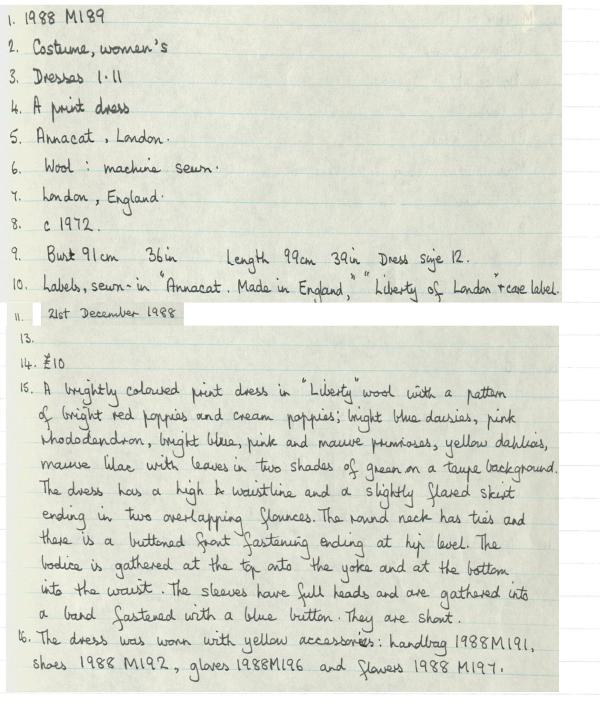 1. 1988 M189
2. Costume, women's
3. Dresses 1.11
4. A print dress
5. Annacat, London.
6. Wool : machine sewn.
7. London, England.
8. c 1972.
9. Bust 91cm 36in Length 99cm 39in Dress size 12.
10. Labels, sewn-in "Annacat. Made in England," "Liberty of London" + care label.
11. 21st December 1988
13.
14. £10
15. A brightly coloured print dress in "Liberty" wool with a pattern
of bright red poppies and cream poppies; bright blue daisies, pink
rhododendron, bright blue, pink and mauve primroses, yellow dahlias,
mauve lilac with leaves in two shades of green on a taupe background.
The dress has a high waistline and a slightly flared skirt
ending in two overlapping flounces. The round neck has ties and
there is a buttoned front fastening ending at hip level. The
bodice is gathered at the top onto the yoke and at the bottom
into the waist. The sleeves have full heads and are gathered into
a band fastened with a blue button. They are short.
16. The dress was worn with yellow accessories: handbag 1988M191,
shoes 1988 M192, gloves 1988M196 and flowers 1988 M197.